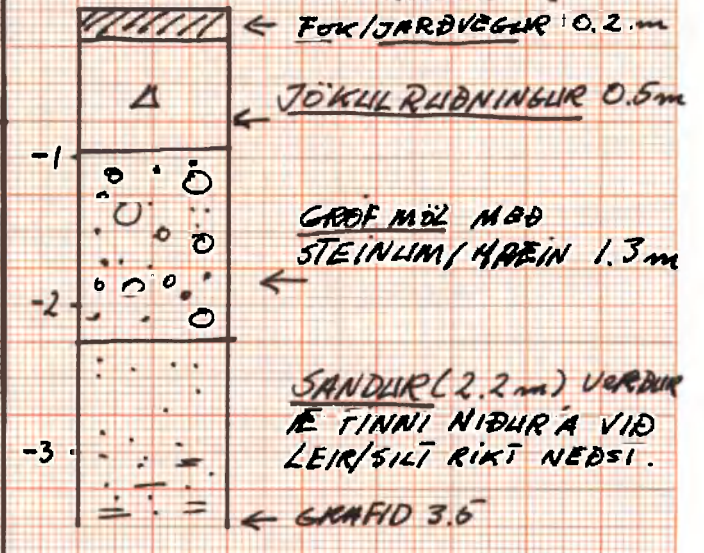 FOK/JARÐVEGUR 0.2 m
JÖKULRUÐNINGUR 0.5 m
-1
GRÓF MÖL MEÐ
STEINUM/HREIN 1.3 m
-2
SANDUR (2.2 m) VERÐUR
Æ FINNI NIÐUR Á VIÐ
LEIR/SILT RÍKT NEÐST.
-3
GRAFIÐ 3.5